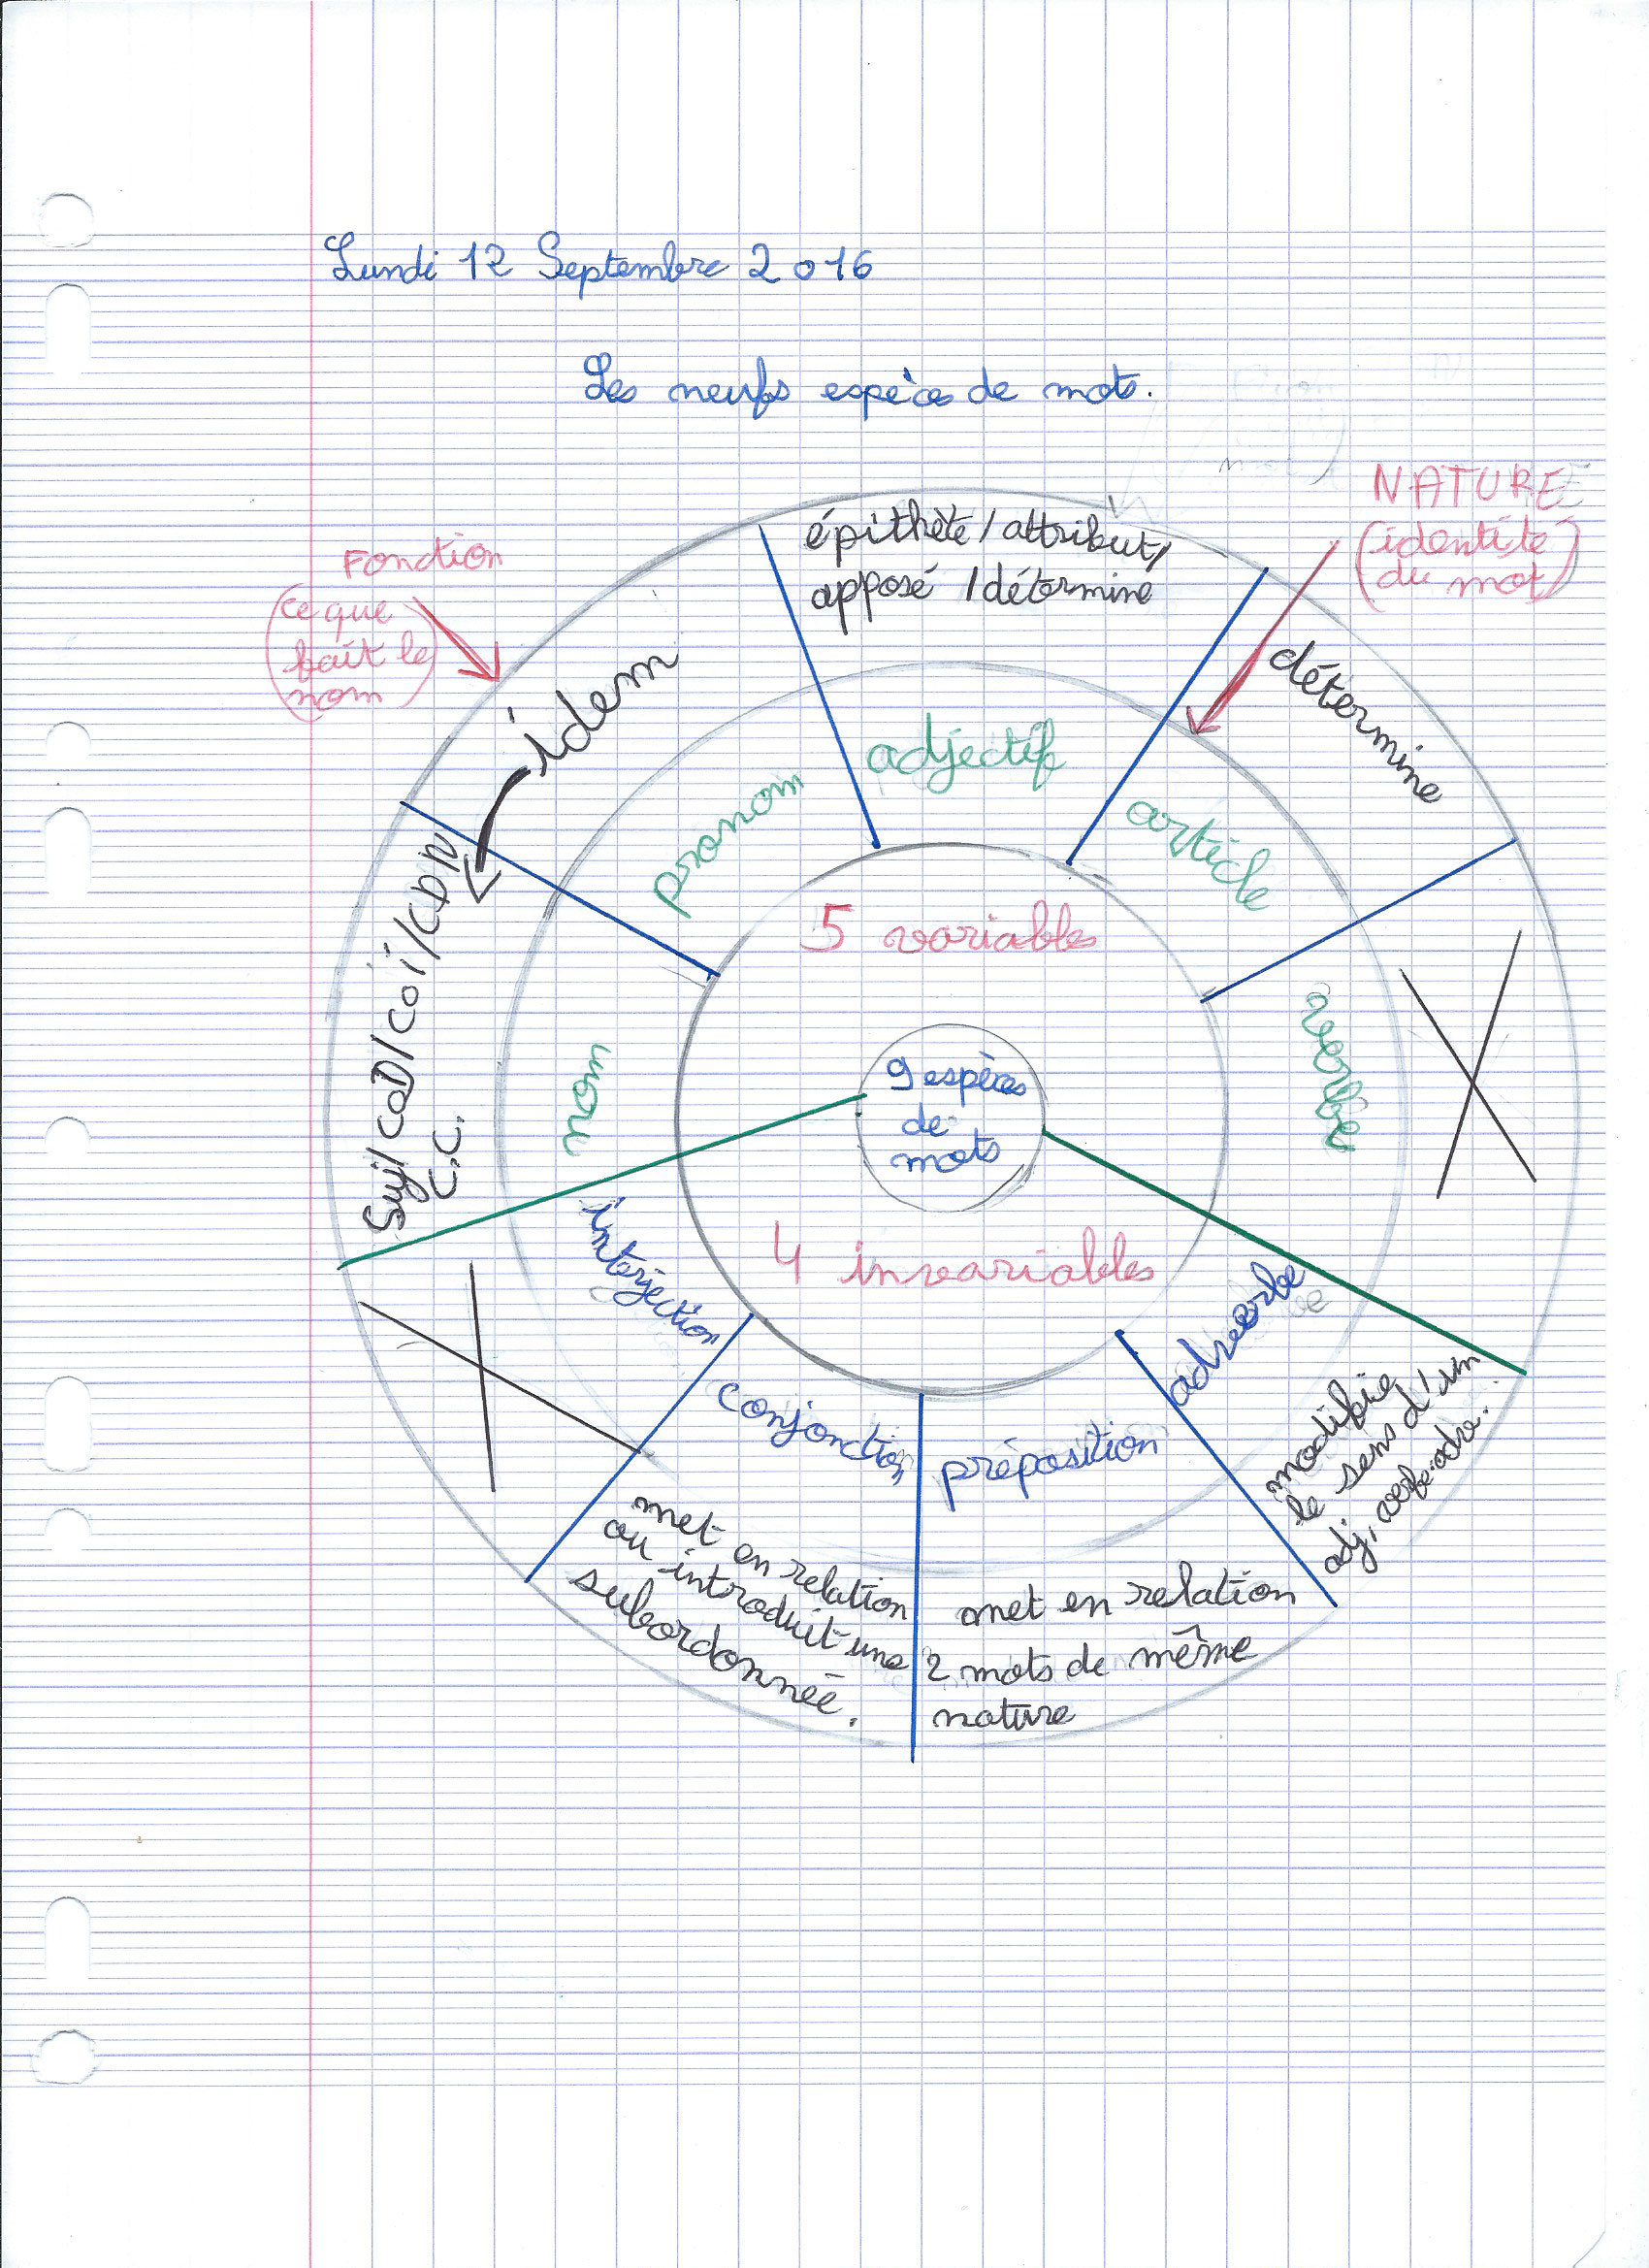 Lundi 12 Septembre 2016
Les neufs espèces de mots.
NATURE
(identité
du mot)
Fonction
(ce que
fait le
nom)
épithète / attribut /
apposé / détermine
détermine
idem
Suj / COD / coi / CDN
C.C.
adjectif
article
pronom
nom
verbe
5 variables
9 espèces
de
mots
4 invariables
interjection
conjonction
préposition
adverbe
modifie
le sens d'un
adj, verbe, adv.
met en relation
ou introduit une
subordonnée.
met en relation
2 mots de même
nature